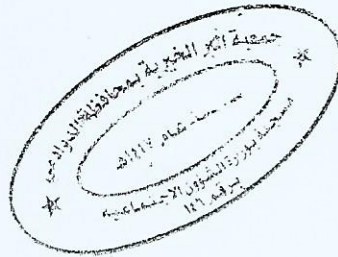 جمعية البر الخيرية بمحافظة الدوادمي
عام ١٤١٧هـ
مسجلة بوزارة الشؤون الاجتماعية
برقم ١٤٦